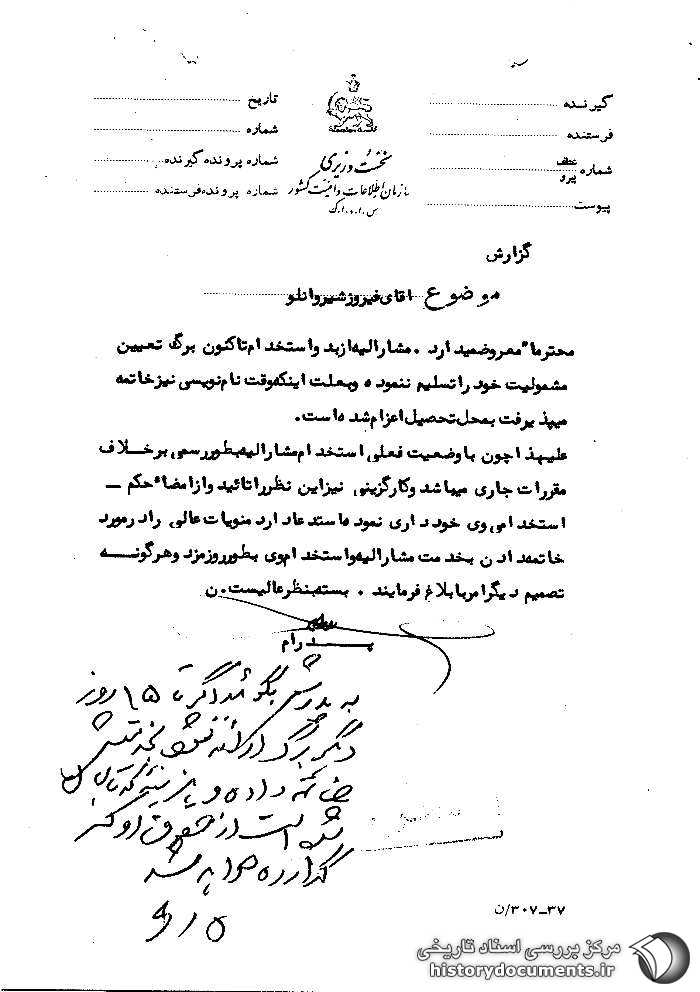 گیرنده
فرستنده
شماره عطف پیرو
پیوست
تاریخ
شماره
شماره پرونده گیرنده
شماره پرونده فرستنده
نخست وزیری
سازمان اطلاعات و امنیت کشور
س.ا.و.ا.ک
گزارش
موضوع اقای فیروز شیروانلو
محترما" معروضمیدارد . مشارالیه از بدو استخدام تاکنون برگ تعیین
مشمولیت خود را تسلیم ننموده و بعلت اینکه وقت نام نویسی نیز خاتمه
میپذیرفت بمحل تحصیل اعزام شده است.
علیهذا چون با وضعیت فعلی استخدام مشارالیه بطور رسمی برخلاف
مقررات جاری میباشد و کارگزینی نیز این نظر را تائید و از امضاء حکم ـ
استخدامی وی خودداری نموده استدعا دارد منویات عالی را در مورد
خاتمه دادن بخدمت مشارالیه و استخدام وی بطور روزمزد و هرگونه
تصمیم دیگر امر با بلاغ فرمایند . بسته بنظر عالیست. ن
پدرام
به پدرش بگوئید اگر تا ۱۵ روز
دیگر برگ ارائه نشود بخدمتش
خاتمه داده و
است از حقوق او کسر
گذارده خواهد شد
۳۰۷-۳۷/ن
مرکز بررسی اسناد تاریخی
historydocuments.ir